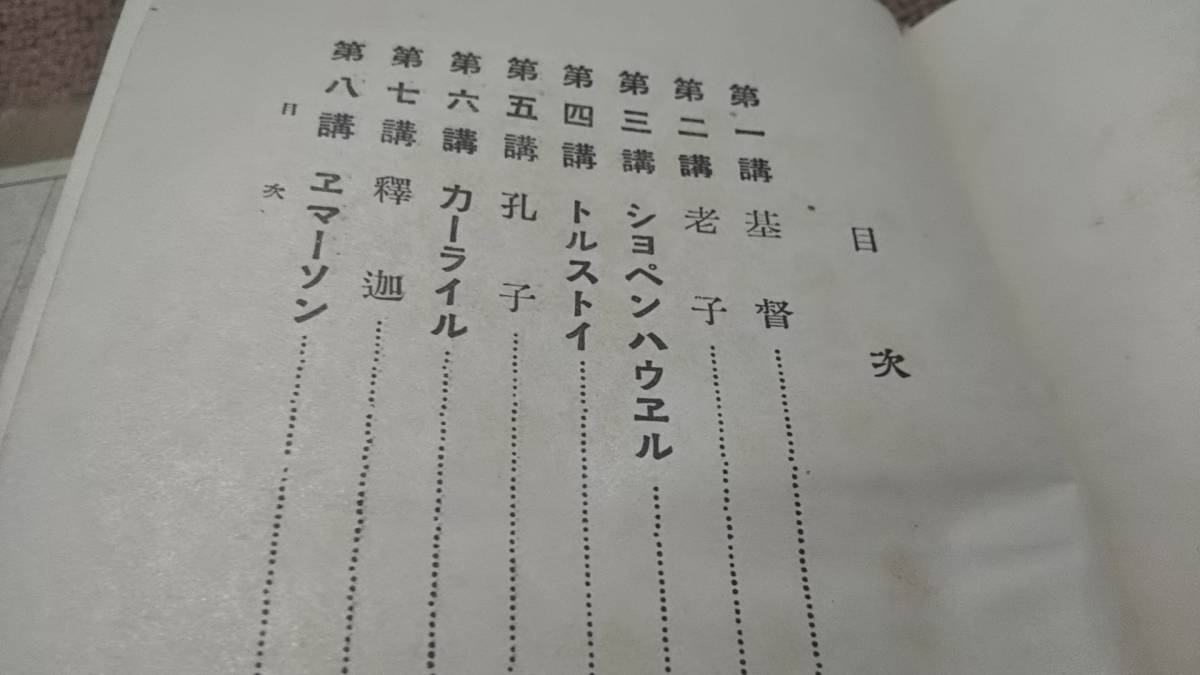 目次
第一講 基督
第二講 老子
第三講 ショペンハウヱル
第四講 トルストイ
第五講 孔子
第六講 カーライル
第七講 釋迦
第八講 ヱマーソン
目次